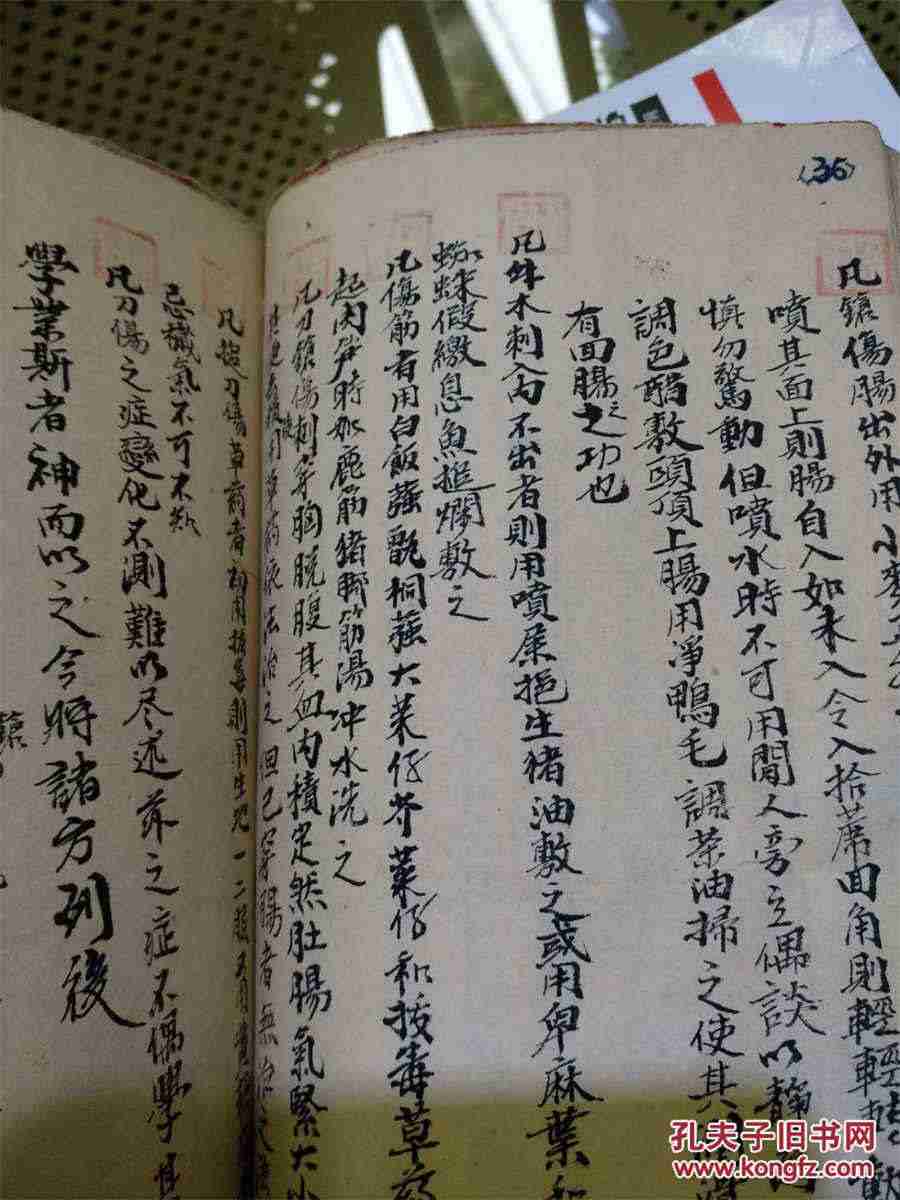 <36>
凡鎗傷腸出外用小麥五
噴其面上則腸自入如未入令入拾蓆四角則輕輕
慎勿驚動但噴水時不可用閒人旁立偶談以靜為
調色醋敷頭頂上腸用淨鴨毛調茶油掃之使其
有回腸之功也
凡竹木刺入肉不出者則用噴屎拖生猪油敷之或用卑麻葉和
蜘蛛假繳息魚搥爛敷之
凡傷筋者用白飯蕊 桐蕊大菜仔芥菜仔和拔毒草药
起肉笋時如鹿筋猪脚筋湯冲水洗之
凡刀鎗傷刺穿胸脫腹其血內積定然肚腸氣緊大小
用草药 法治之但已穿腸者無
凡搥刀傷草药者 則用生地一二
忌機氣不可不
凡刀傷之症變化不測難以尽述亦之症不偶學
學業斯者神而以之今將諸方列後
孔夫子旧书网
www.kongfz.com